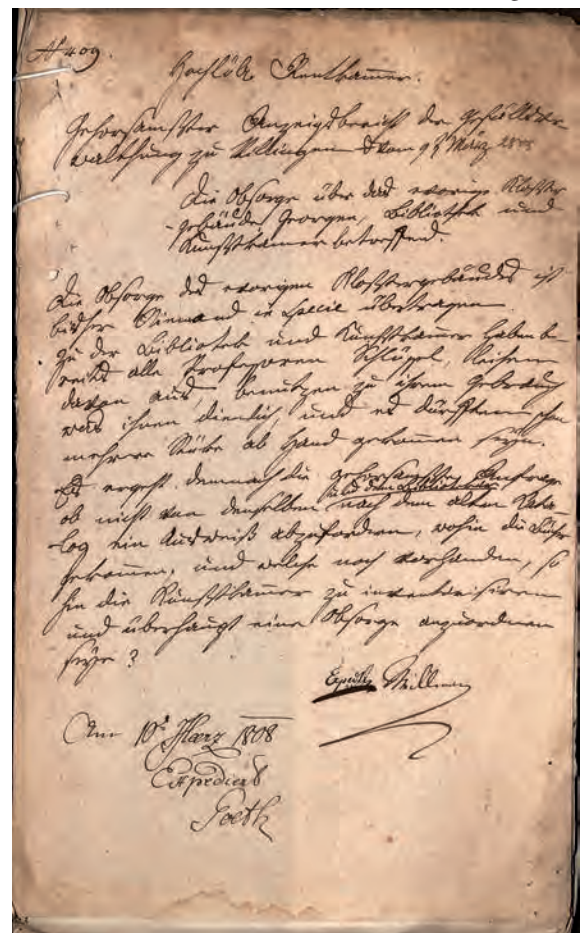 N 409.
Hochlöbl. Rentkammer.
Gehorsamster Anzeigsbericht der Gefällver
waltung zu Villingen vom 9t März 1808
Die Obsorge über das vorige Kloster
gebäude Georgen, Bibliothek und
Kunstkammer betreffend.
Die Obsorge des vorigen Klostergebäudes ist
bisher Niemand in Specie übertragen.
Zu der Bibliothek und Kunstkammer haben be-
reits alle Professoren Schlüssel, leihen
davon aus, benutzen zu ihrem Gebrauch
was ihnen dienlich, und es dürften schon
mehrere Stücke ab Hand gekommen seyn.
Es ergeht demnach die gehorsamste Anfrage
und dem Bibliothekar
ob nicht von denselben nach dem alten Kata-
log ein Ausweiß abzufordern, wohin die Bücher
gekommen, und welche noch vorhanden, so
hin die Kunstkammer zu inventarisiren
und überhaupt eine Obsorge anzuordnen
seye?
Willmann
Am 10t März 1808
Expedirt